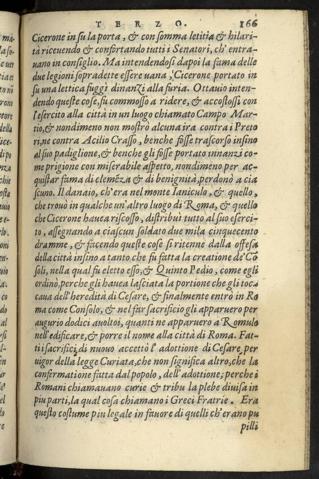 TERZO. 166
Cicerone in su la porta, & con somma letitia & hilari-
tà ricevendo & confortando tutti i Senatori, ch' entra-
uano in consiglio. Ma intendendosi dapoi la fama delle
due legioni sopradette essere uana, Cicerone portato in
su una lettica fuggì dinanzi alla furia. Ottavio inten-
dendo queste cose, fu commosso a ridere, & accostossi con
l'esercito alla città in un luogo chiamato Campo Mar-
tio, & nondimeno non mostrò alcuna ira contra i Preto
ri, ne contra Acilio Crasso, benche fosse trascorso insino
al suo padiglione, & benche gli fosse portato innanzi co-
me prigione con miserabile aspetto, nondimeno per ac-
quistar fama di clemẽza & di benignità, perdonò a cia
scuno. Il danaio, ch'era nel monte Ianiculo, & quello,
che trouò in qualche un'altro luogo di Roma, & quello
che Cicerone hauea riscosso, distribuì tutto al suo eserci-
to, assegnando a ciascun soldato due mila cinquecento
dramme, & facendo queste cose si ritenne dalla offesa
della città insino a tanto che fu fatta la creatione de' Cõ
soli, nella qual fu eletto esso, & Quinto Pedio, come egli
ordinò, perche gli hauea lasciata la portione che gli toc-
caua dell'heredità di Cesare, & finalmente entrò in Ro
ma come Consolo, & nel far sacrificio gli apparuero per
augurio dodici auoltoi, quanti ne apparuero a Romulo
nell'edificare, & porre il nome alla città di Roma. Fat-
ti i sacrifici, di nuouo accettò l'adottione di Cesare per
uigor della legge Curiata, che non significa altro, che la
confirmatione fatta dal popolo, dell'adottione, perche i
Romani chiamauano curie & tribu la plebe diuisa in
piu parti, la qual cosa chiamano i Greci Fratrie. Era
questo costume piu legale in fauore di quelli ch'erano pu
pilli